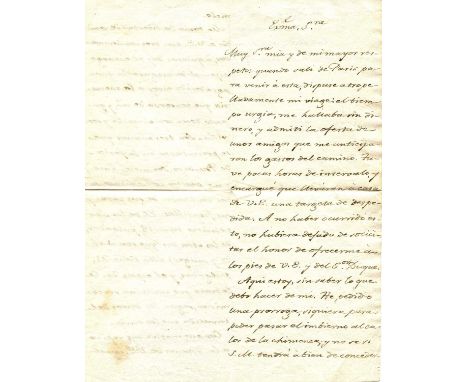 Exma. Sra
Muy Sra mia y de mi mayor res-
peto: quando salí de Paris pa-
ra venir á esta, dispuse atrope-
lladamente mi viage: el tiem-
po urgia, me hallaba sin di-
nero, y admití la oferta de
unos amigos que me anticipa-
ron los gastos del camino. Tu-
ve pocas horas de intervalo, y
encargué que llevaran á casa
de V.E. una targeta de despe-
dida. A no haber ocurrido es-
to, no hubiera dejado de solici-
tar el honor de ofrecerme á
los pies de V.E. y del Sor Duque.
Aqui estoy, sin saber lo que
debo hacer de mi. He pedido
una prorroga, siquiera para
poder pasar el imbierno al ca-
lor de la chimenea, y no se si
S.M. tendrá á bien de conceder-